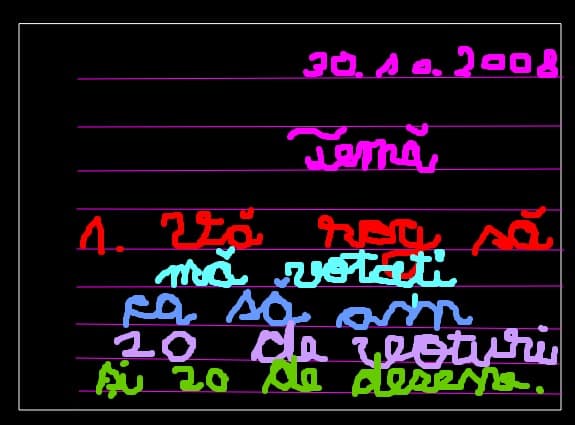 30.10.2008
Temă
1. Vă rog să
mă votati
ca să am
20 de voturi
și 20 de desene.